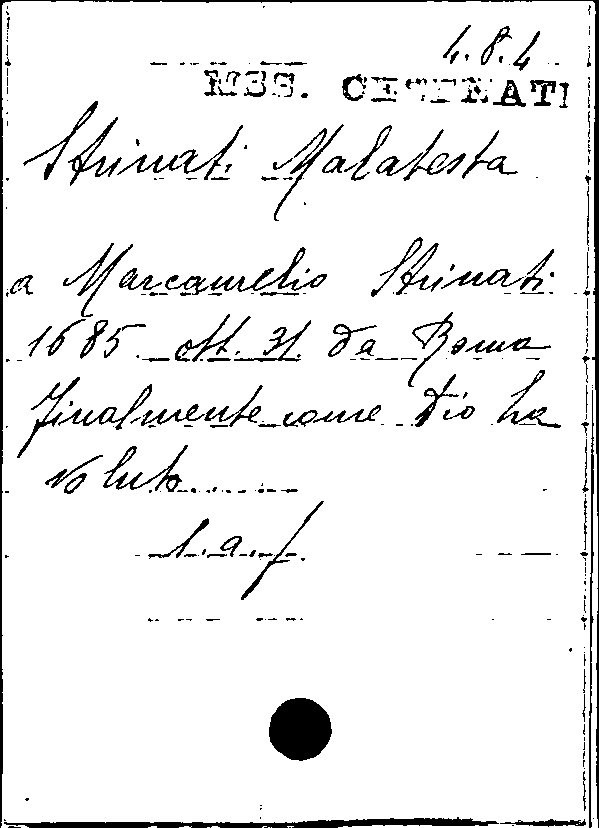 4.8.4
MSS. CESENATI
Strinati Malatesta
a Marcaurelio Strinati
1685 ott. 31. da Roma
Finalmente come Dio ha
voluto.....
l. a. f.